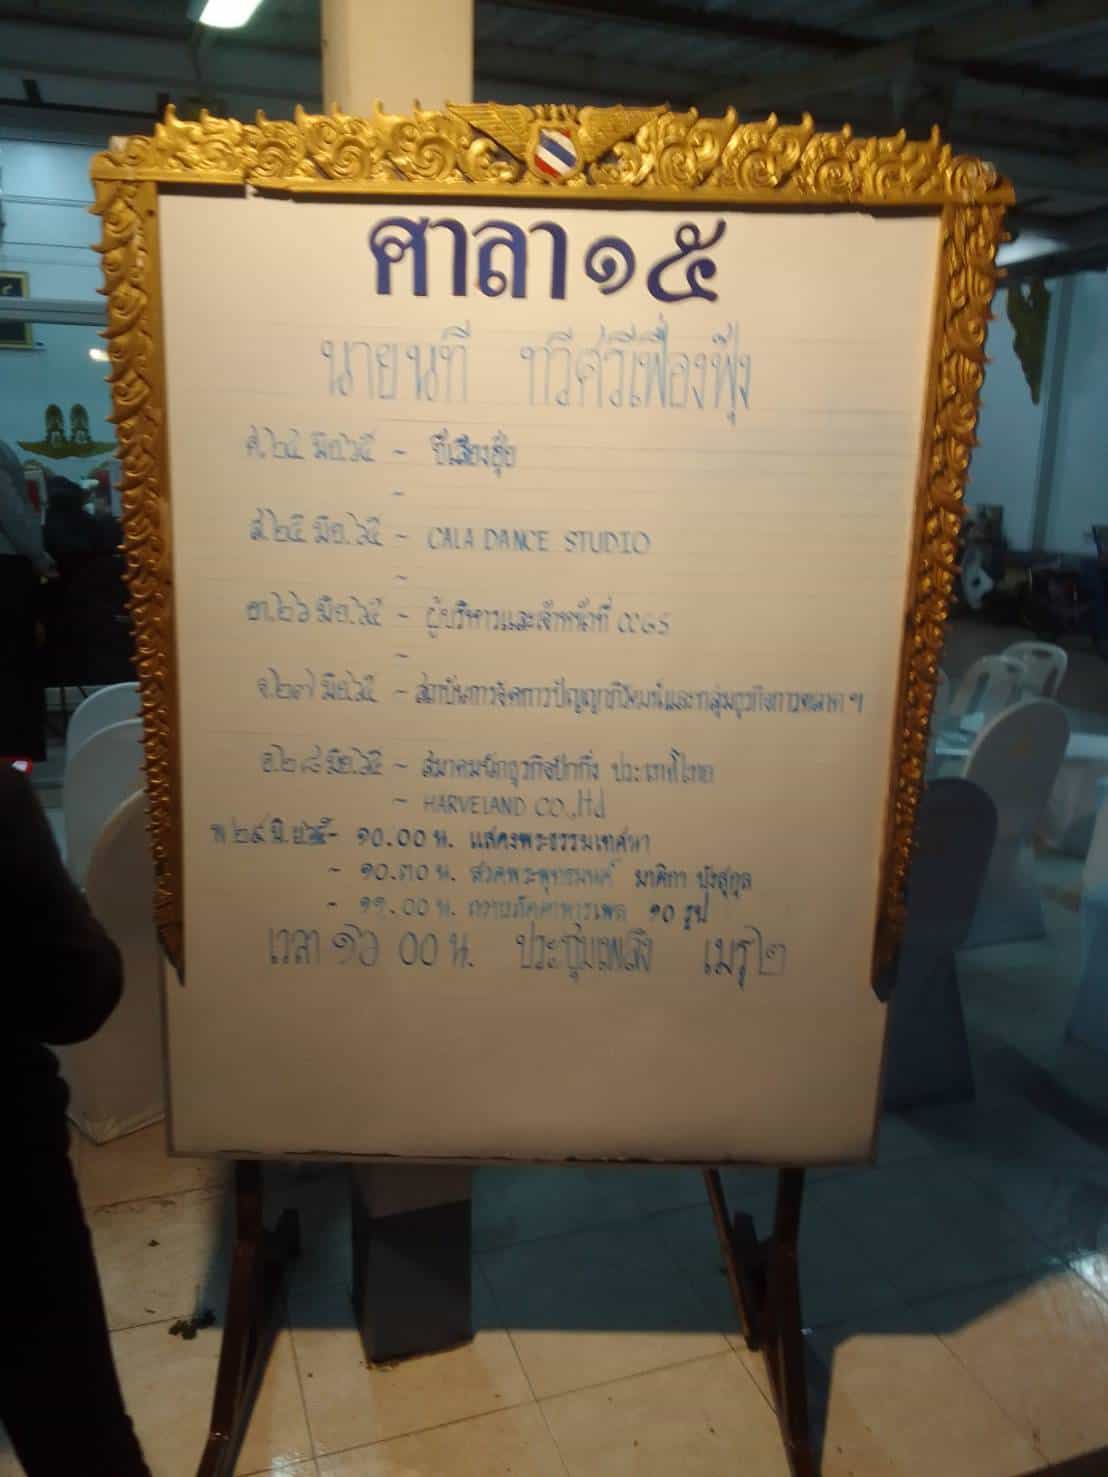 ศาลา ๑๕
นายนที ทวีศรีเฟื่องฟุ้ง
ศ.๒๔ มิย.๖๕ ~ ยี่เสียงฮุ้ย
~
ส.๒๕ มิย.๖๕ ~ CALA DANCE STUDIO
~
อา.๒๖ มิย.๖๕ ~ ผู้บริหารและเจ้าหน้าที่
~
จ.๒๗ มิย.๖๕ ~ สถาบันการจัดการปัญญาภิวัฒน์และกลุ่มธุรกิจการตลาด ฯ
อ.๒๘ มิย.๖๕ ~ สมาคมนักธุรกิจปักกิ่ง ประเทศไทย
~ HARVELAND CO.,ltd
พ ๒๙ มิ.ย ๖๕ - ๑๐.00 น. แสดงพระธรรมเทศนา
- ๑๐.๓๐ น. สวดพระพุทธมนต์ มาติกา บังสุกุล
- ๑๑.00 น. ถวายภัตตาหารเพล ๑๐ รูป
เวลา ๑๖ 00 น. ประชุมเพลิง เมรุ ๒